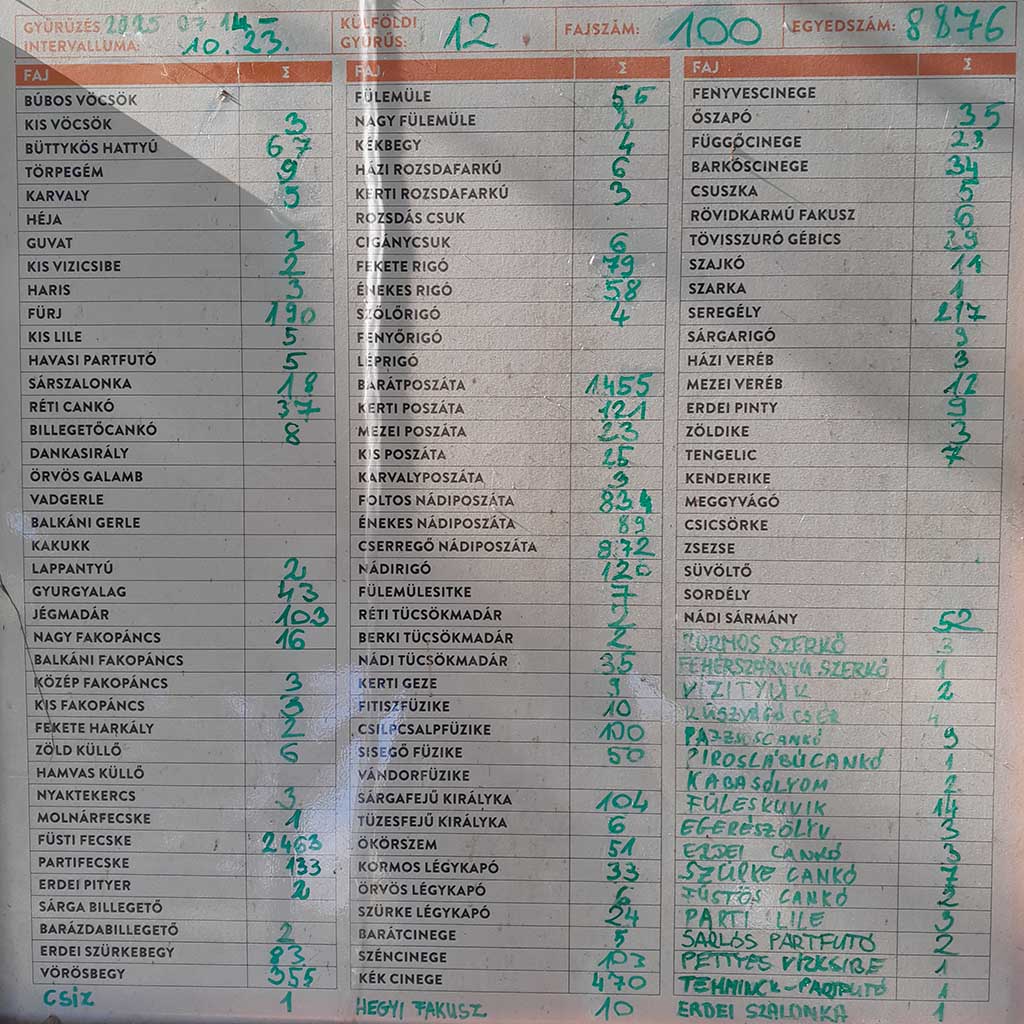 GYŰRŰZÉS 2025 07. 14-
INTERVALLUMA: 10. 23.
KÜLFÖLDI GYŰRŰS: 12
FAJSZÁM: 100
EGYEDSZÁM: 8876
FAJ Σ
BÚBOS VÖCSÖK
KIS VÖCSÖK 3
BÜTTYKÖS HATTYÚ 67
TÖRPEGÉM 9
KARVALY 5
HÉJA
GUVAT 3
KIS VIZICSIBE 2
HARIS 3
FÜRJ 190
KIS LILE 5
HAVASI PARTFUTÓ 5
SÁRSZALONKA 18
RÉTI CANKÓ 37
BILLEGETŐCANKÓ 8
DANKASIRÁLY
ÖRVÖS GALAMB
VADGERLE
BALKÁNI GERLE
KAKUKK
LAPPANTYÚ 2
GYURGYALAG 43
JÉGMADÁR 103
NAGY FAKOPÁNCS 16
BALKÁNI FAKOPÁNCS
KÖZÉP FAKOPÁNCS 3
KIS FAKOPÁNCS 3
FEKETE HARKÁLY 2
ZÖLD KÜLLŐ 6
HAMVAS KÜLLŐ
NYAKTEKERCS 3
MOLNÁRFECSKE 1
FÜSTI FECSKE 2463
PARTIFECSKE 133
ERDEI PITYER 2
SÁRGA BILLEGETŐ
BARÁZDABILLEGETŐ 2
ERDEI SZÜRKEBEGY 83
VÖRÖSBEGY 355
CSIZ 1
FAJ Σ
FÜLEMÜLE 55
NAGY FÜLEMÜLE 2
KÉKBEGY 4
HÁZI ROZSDAFARKÚ 6
KERTI ROZSDAFARKÚ 3
ROZSDÁS CSUK
CIGÁNYCSUK 6
FEKETE RIGÓ 79
ÉNEKES RIGÓ 58
SZŐLŐRIGÓ 4
FENYŐRIGÓ
LÉPRIGÓ
BARÁTPOSZÁTA 1455
KERTI POSZÁTA 121
MEZEI POSZÁTA 23
KIS POSZÁTA 25
KARVALYPOSZÁTA 3
FOLTOS NÁDIPOSZÁTA 834
ÉNEKES NÁDIPOSZÁTA 89
CSERREGŐ NÁDIPOSZÁTA 872
NÁDIRIGÓ 120
FÜLEMÜLESITKE 7
RÉTI TÜCSÖKMADÁR
BERKI TÜCSÖKMADÁR 2
NÁDI TÜCSÖKMADÁR 35
KERTI GEZE 9
FITISZFÜZIKE 10
CSILPCSALPFÜZIKE 100
SISEGŐ FÜZIKE 50
VÁNDORFÜZIKE
SÁRGAFEJŰ KIRÁLYKA 104
TÜZESFEJŰ KIRÁLYKA 6
ÖKÖRSZEM 51
KORMOS LÉGYKAPÓ 33
ÖRVÖS LÉGYKAPÓ 6
SZÜRKE LÉGYKAPÓ 24
BARÁTCINEGE 5
SZÉNCINEGE 103
KÉK CINEGE 470
HEGYI FAKUSZ 10
FAJ Σ
FENYVESCINEGE
ŐSZAPÓ 35
FÜGGŐCINEGE 23
BARKÓSCINEGE 34
CSUSZKA 5
RÖVIDKARMÚ FAKUSZ 6
TÖVISSZURÓ GÉBICS 29
SZAJKÓ 14
SZARKA 1
SEREGÉLY 217
SÁRGARIGÓ 9
HÁZI VERÉB 3
MEZEI VERÉB 12
ERDEI PINTY 9
ZÖLDIKE 3
TENGELIC 7
KENDERIKE
MEGGYVÁGÓ
CSICSÖRKE
ZSEZSE
SÜVÖLTŐ
SORDÉLY
NÁDI SÁRMÁNY 52
KORMOS SZERKŐ 3
FEHÉRSZÁRNYÚ SZERKŐ 1
VIZITYÚK 2
KÜSZVÁGÓ CSÉR 4
PAJZSOSCANKÓ 9
PIROSLÁBÚCANKÓ 1
KABASÓLYOM 2
FÜLESKUVIK 14
EGERÉSZÖLYV 3
ERDEI CANKÓ 3
SZÜRKE CANKÓ 7
FÜSTÖS CANKÓ 2
PARTI LILE 3
SARLÓS PARTFUTÓ 2
PETTYES VIZICSIBE 1
TEMMINCK-PARTFUTÓ 1
ERDEI SZALONKA 1